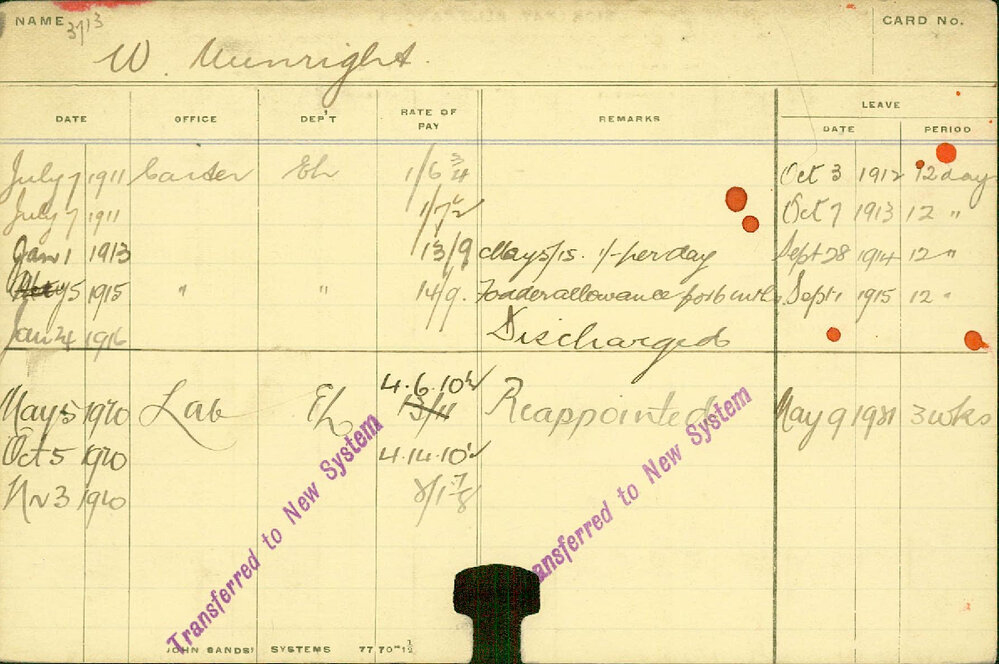 NAME 3713 CARD No.
W.
DATE OFFICE DEP'T RATE OF PAY REMARKS LEAVE
DATE PERIOD
July 7 1911 Carter Eh 1/6 3/4 Oct 3 1912 12 day
July 7 1911 1/7 1/2 Oct 7 1913 12 "
Jan 1 1913 13/9 May 5/15. 1/- per day Sept 28 1914 12 "
May 5 1915 " " 14/9. Fodder allowance for 6 mths Sept 1 1915 12 "
Jan 24 1916 Discharged
May 5 1920 Lab Eh 4.6.10 1/2 Reappointed May 9 1921 3 wks
Oct 5 1920 4.14.10 1/2
Nv 3 1920
Transferred to New System
ansferred to New System
JOHN SANDS' SYSTEMS 7770